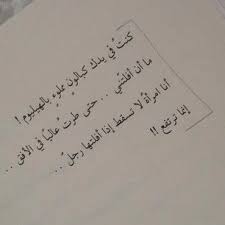 كنتُ في يدك كبالونٍ مملوءٍ بالهيليوم !
ما أن أفلتّني ... حتى طرتُ عالياً في الأفق ...
أنا امرأةٌ لا تسقط إذا أفلتها رجلٌ ...
إنما ترتفع !!